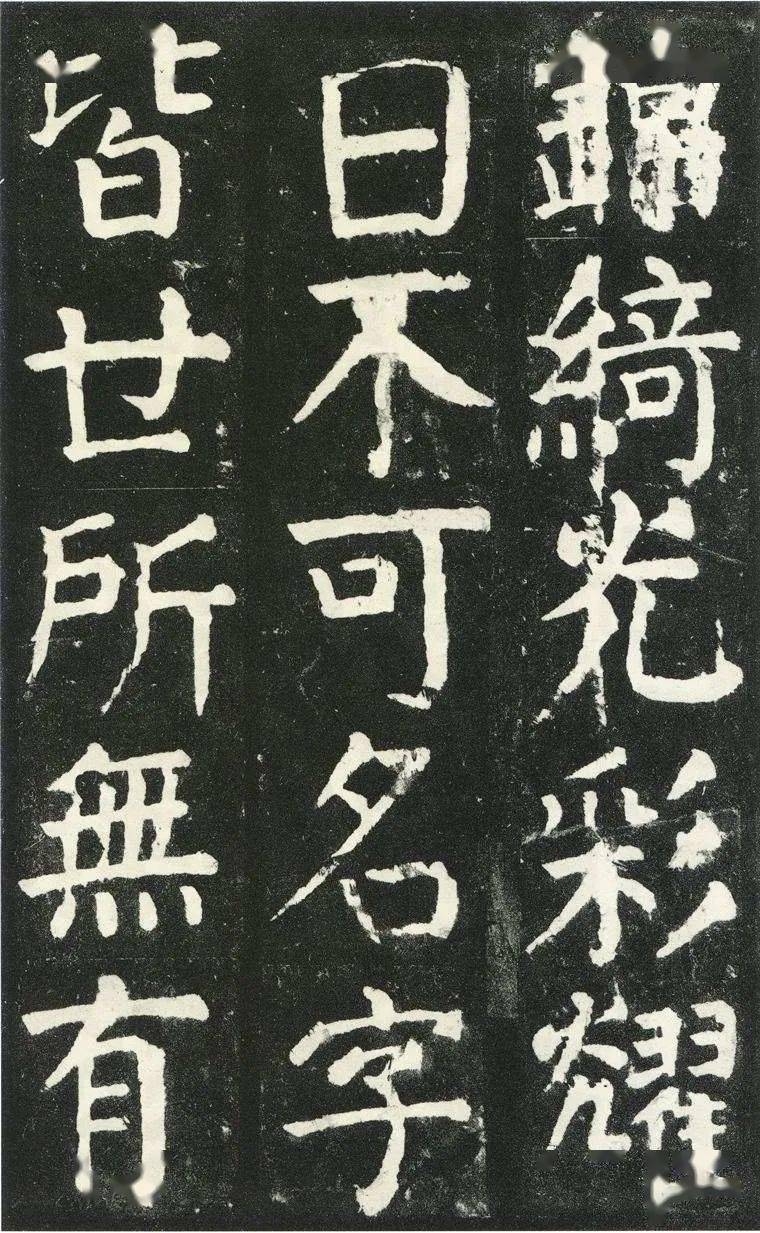 錦綺光彩耀
日不可名字
皆世所無有